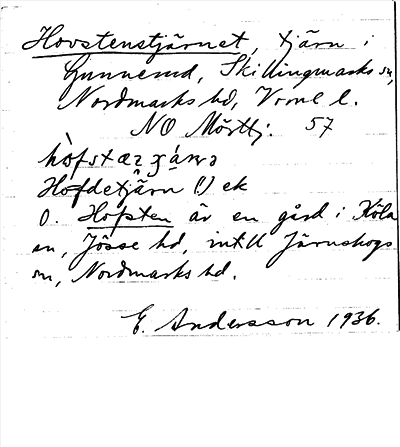 Hovstenstjärnet, tjärn i
Gunnerud, Skillingmarks sn,
Nordmarks hd, Vrml l.
NO Mörttj. 57
Hofdetjärn (!) ek
O. Höpsten är en gård i Köla
sn, Jösse hd, intill Järnskogs
sn, Nordmarks hd.
E. Andersson 1936.